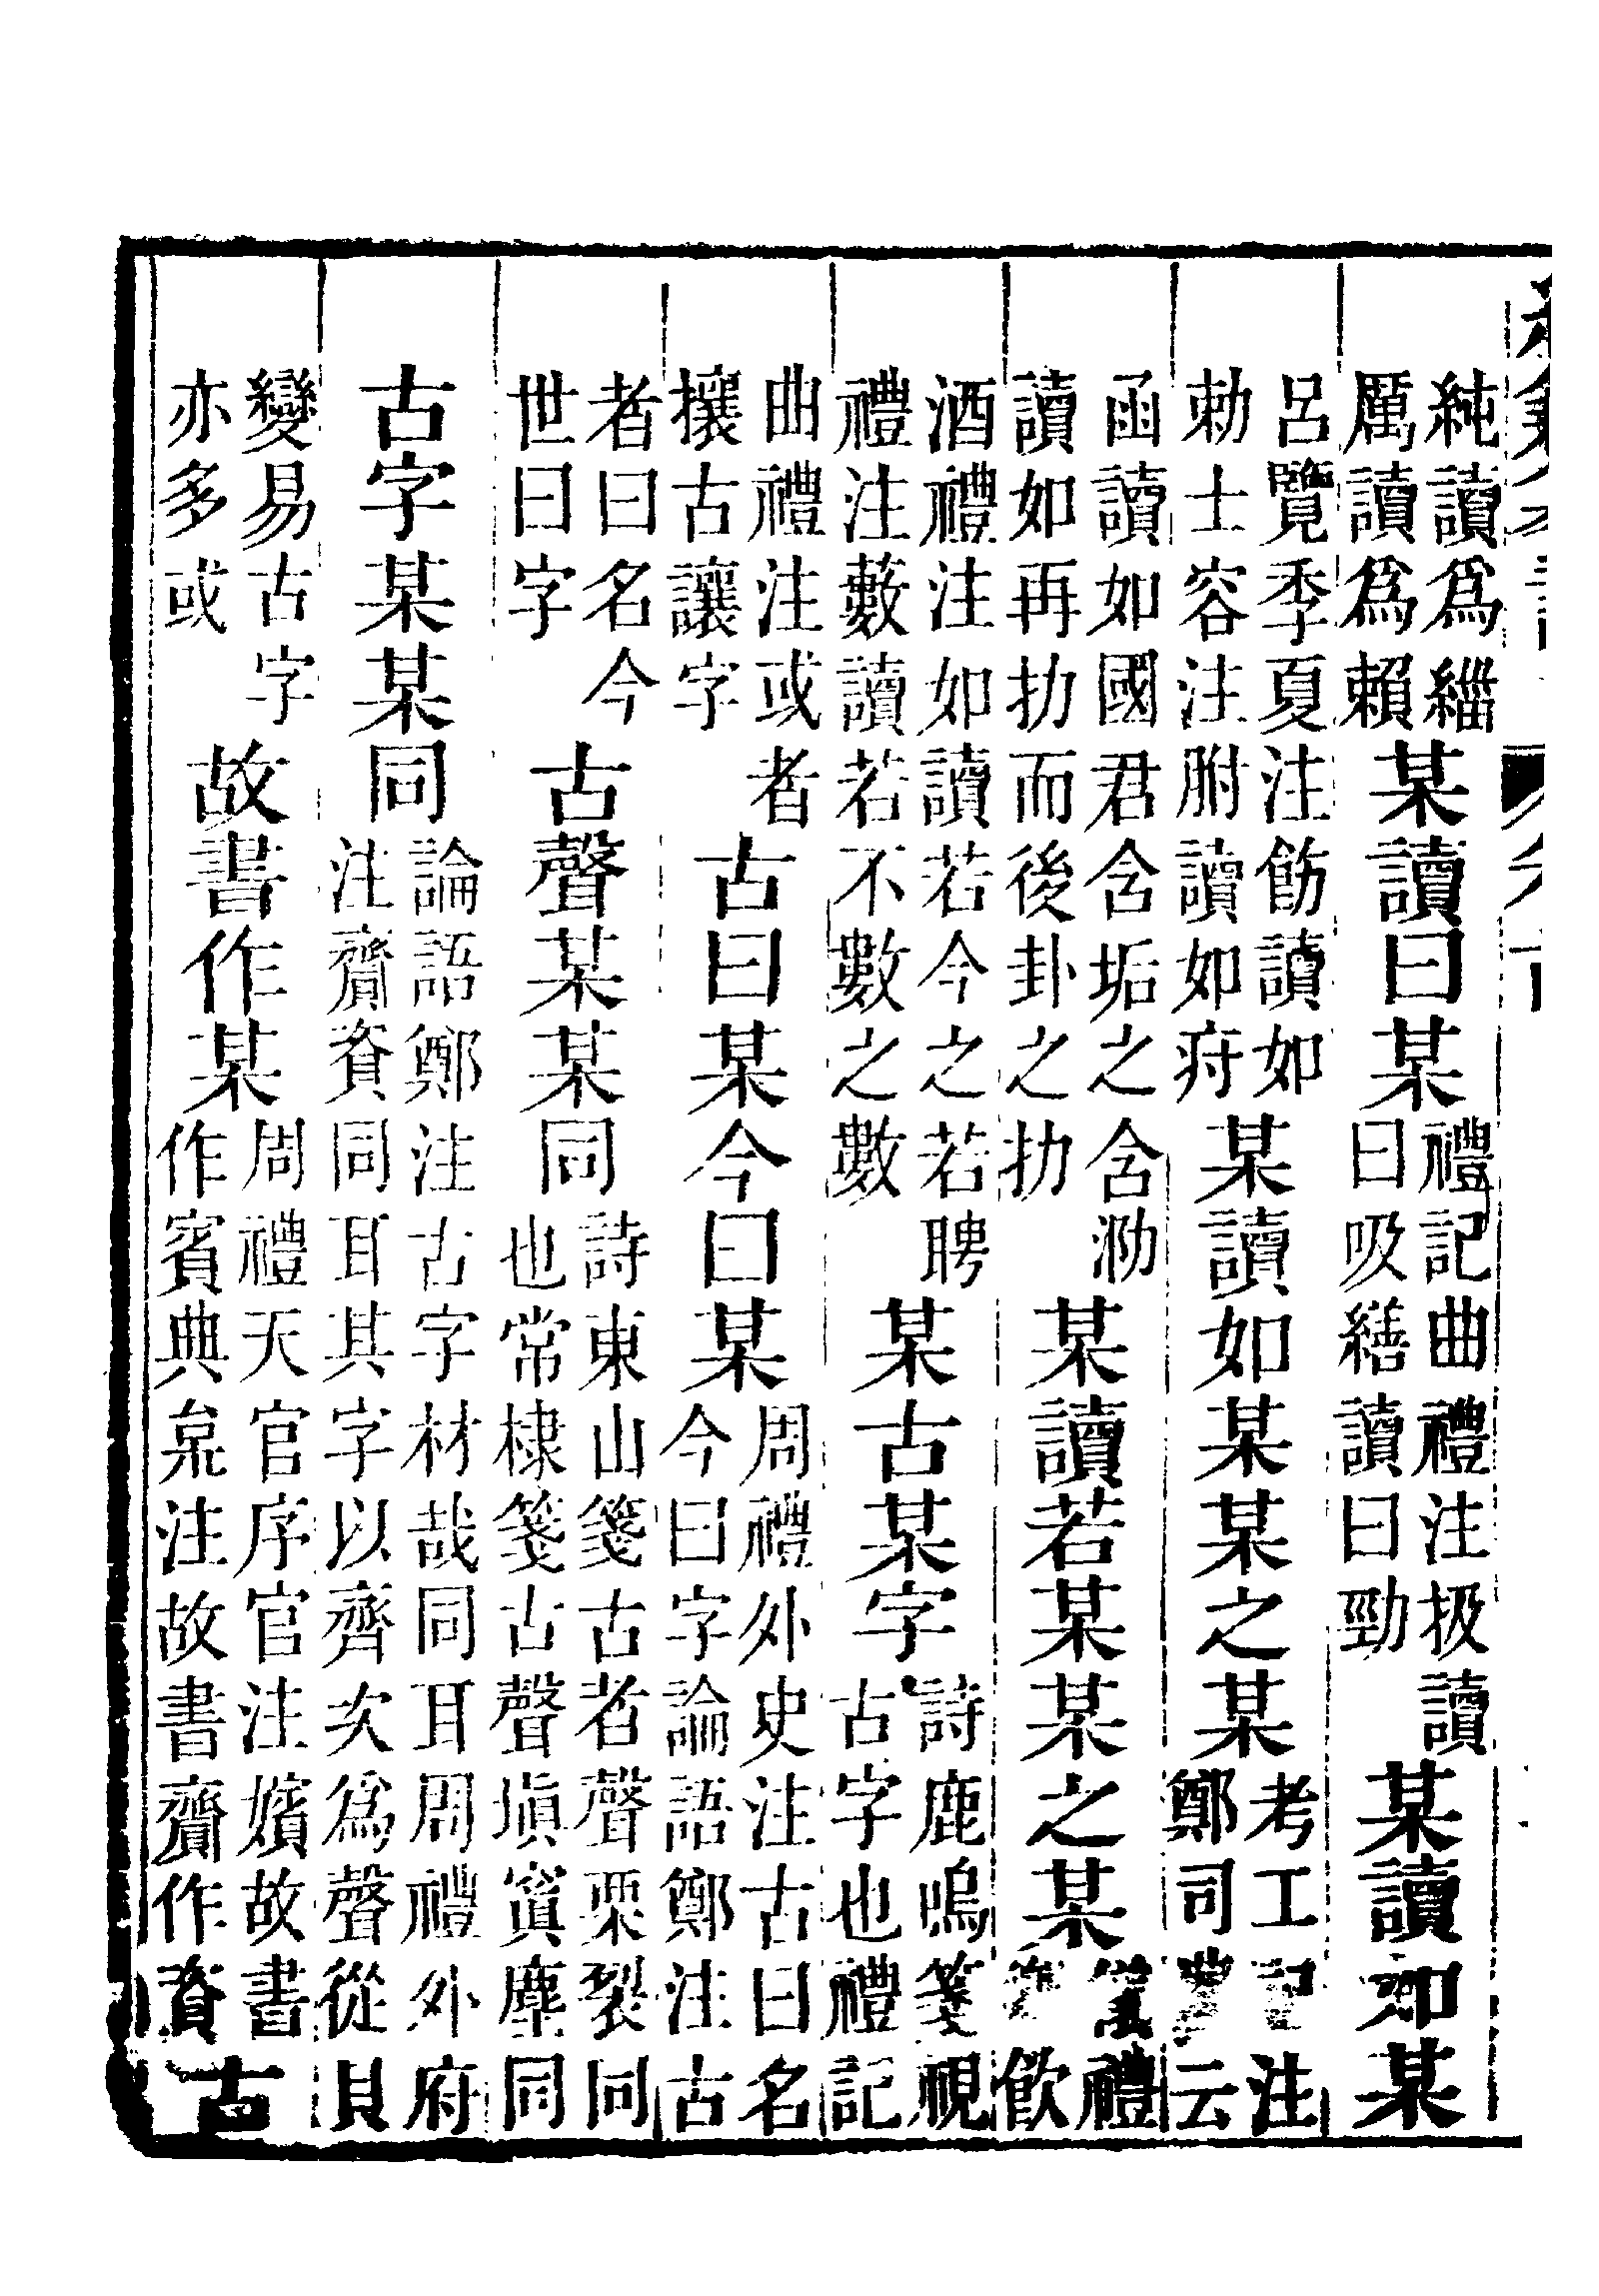 純讀爲緇
厲讀爲賴
某讀曰某
禮記曲禮注扱讀
曰吸繕讀曰勁
某讀如某
呂覽季夏注飭讀如
勅士容注胕讀如疛
某讀如某某之某
考工記注
鄭司農云
函讀如國君含垢之含泐
讀如再扐而後卦之扐
某讀若某某之某
禮
飮
酒禮注如讀若今之若聘
禮注藪讀若不數之數
某古某字
詩鹿鳴箋視
古字也禮記
曲禮注或者
攘古讓字
古曰某今曰某
周禮外史注古曰名
今曰字論語鄭注古
者曰名今
世曰字
古聲某某同
詩東山箋古者聲栗裂同
也常棣箋古聲塡窴塵同
古字某某同
論語鄭注古字材哉同耳周禮外府
注齎資同耳其字以齊次爲聲從貝
變易古字
亦多或
故書作某
周禮天官序官注嬪故書
作賓典枲注故書齎作資
古